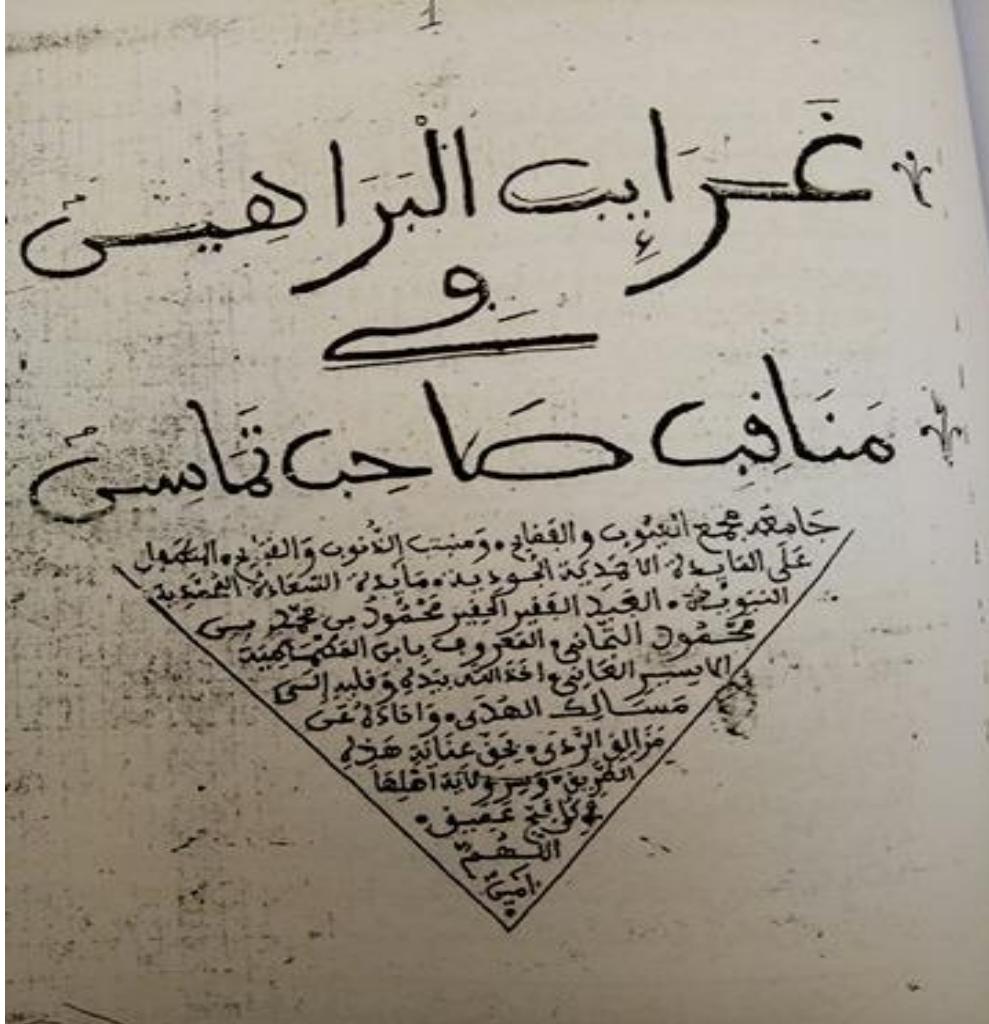 1
غَرَايِب الْبَرَاهِين
في
مَنَاقِب صَاحِب تَمَاسِين
جَامعه مجمع العيُوب والقبايح. وَمنبت الذنوب وَالفضايح، المتطفل
عَلَى المايدة الاحمدية الجودية. مَايدة السعادة المحمدية
النبوية. العَبد الفقير الحقير محْمُود بن محمّد بن
محْمُود التماسي المعروف بابن المطماطية
الايسر العاني. اخذ الله بيده وقلبه إلى
مَسَالك الهدى. وَاعاذه عَن
مَزالق الرّدى. بحقّ عنَاية هَذه
الطريق. وَسر ولاية اهْلِهَا
في كل فج عَميق.
اللهُم
امين.